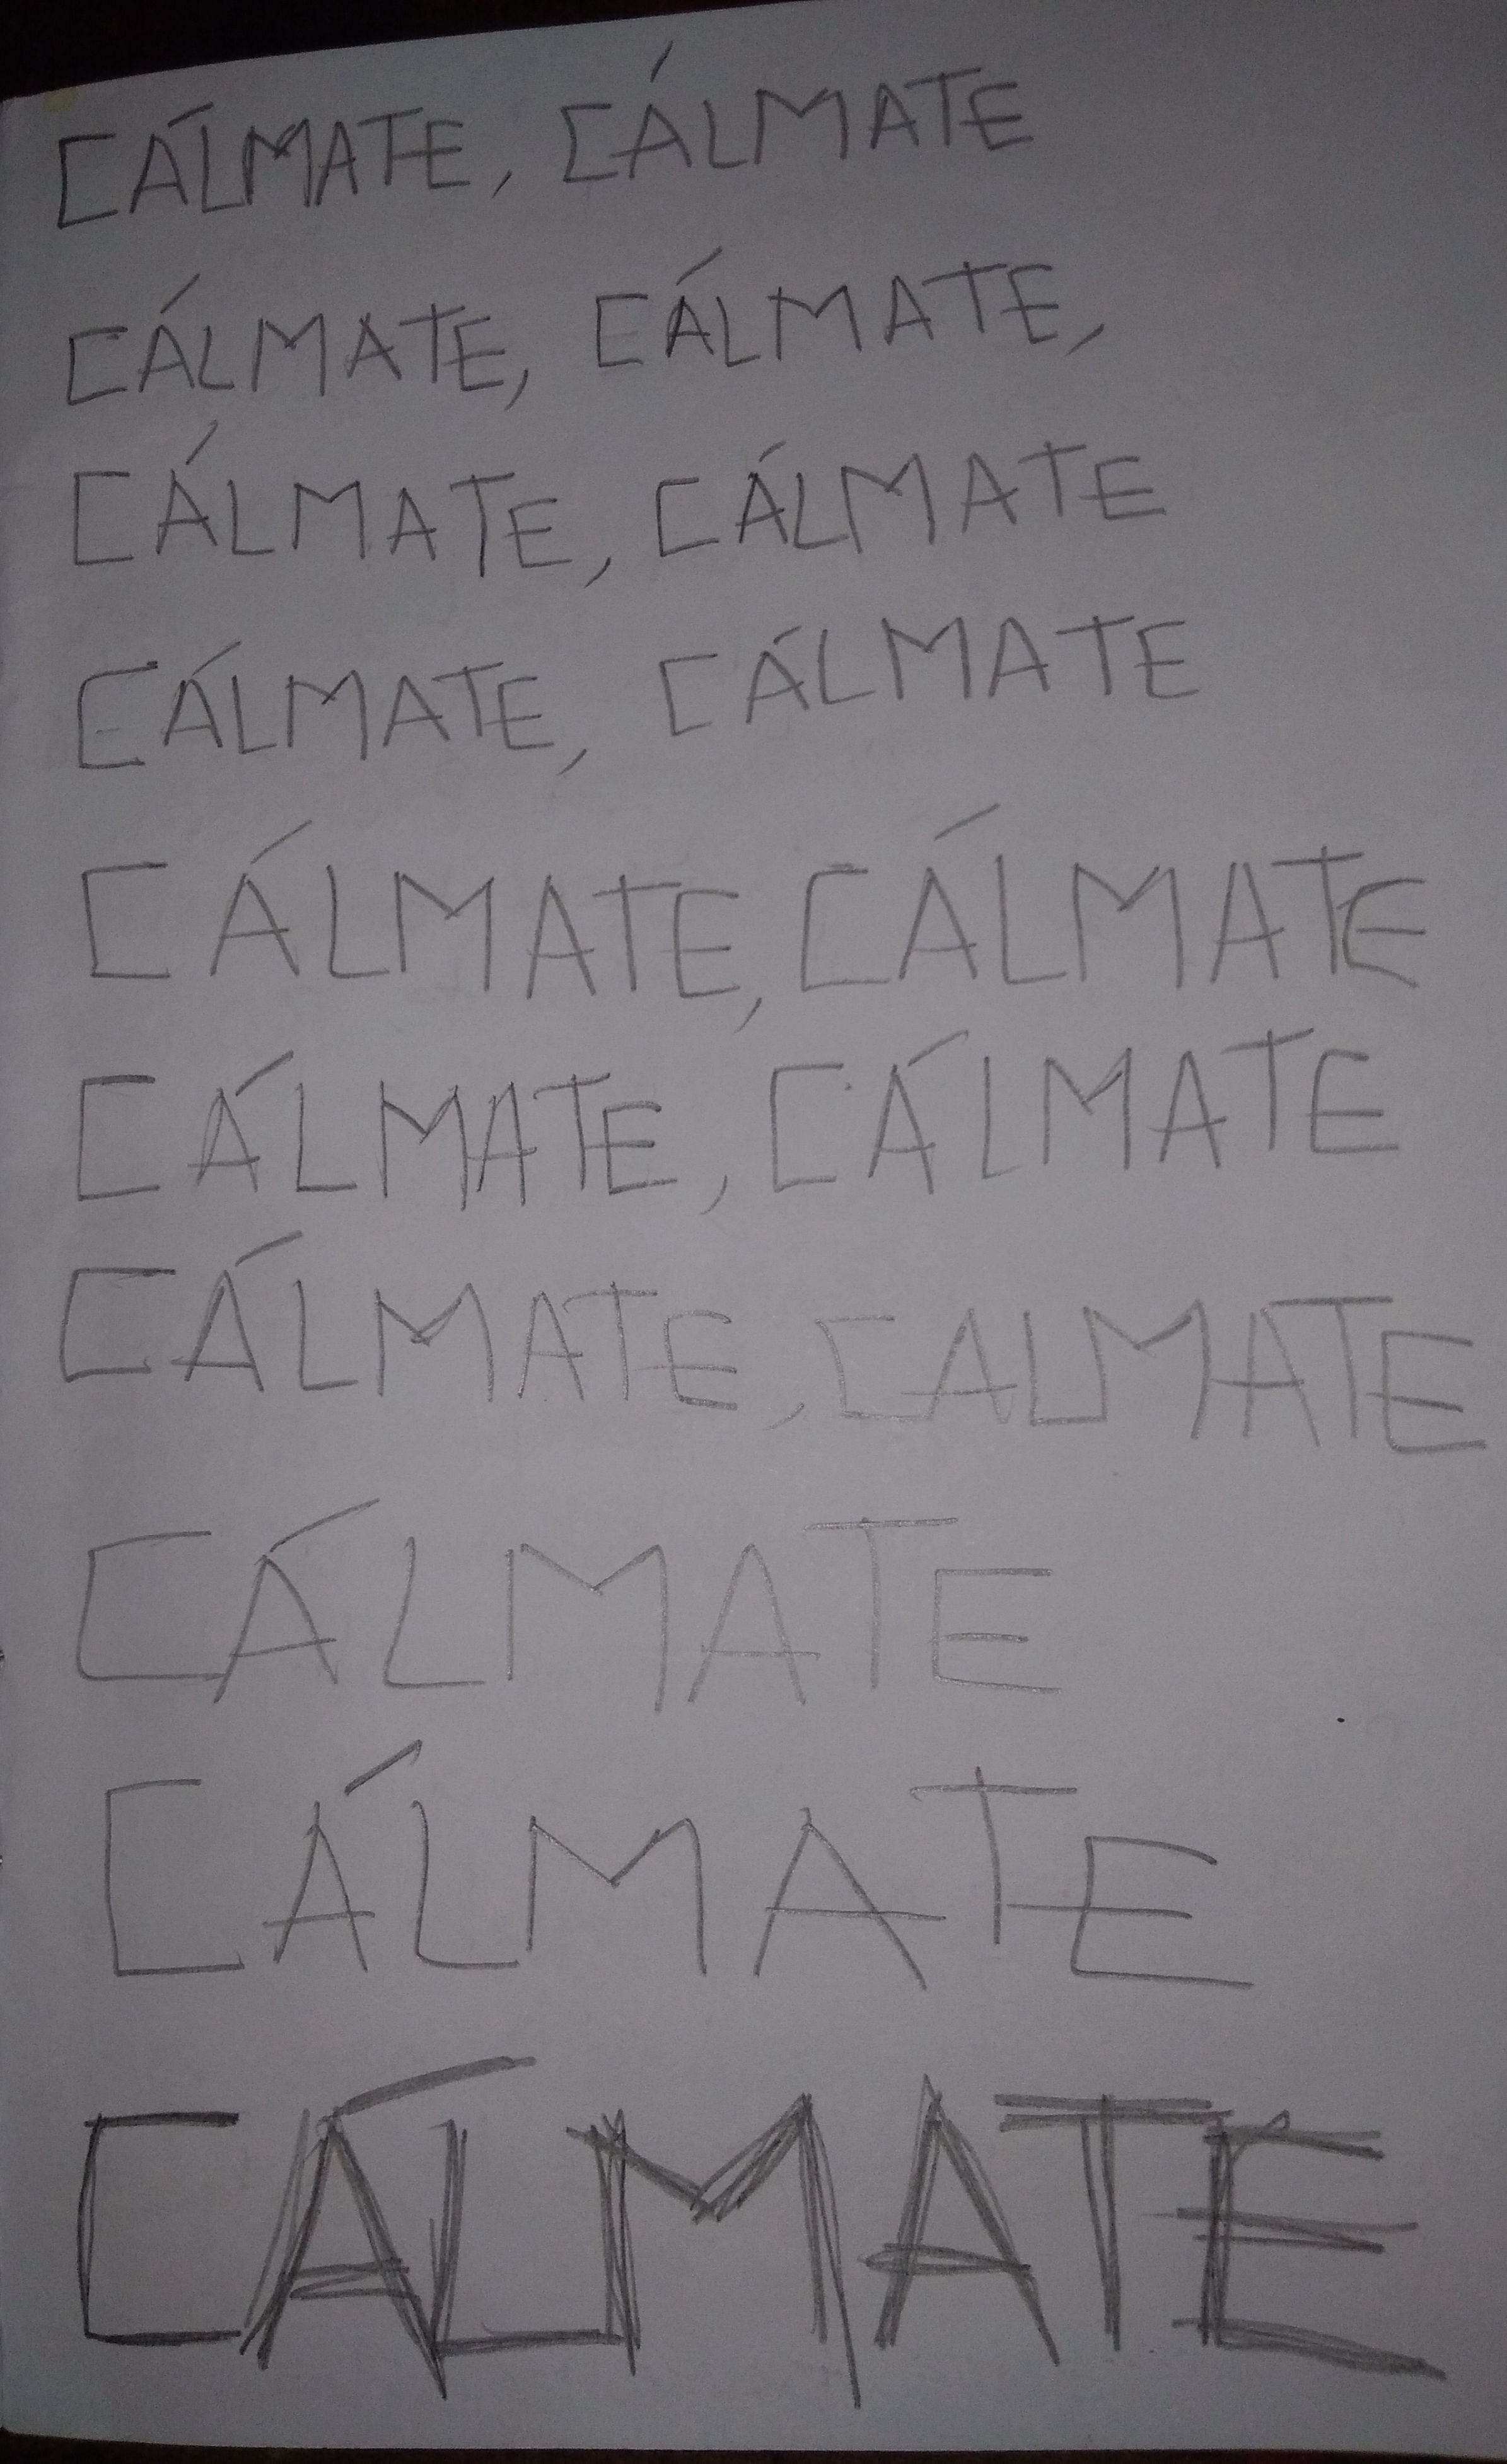 CÁLMATE, CÁLMATE
CÁLMATE, CÁLMATE,
CÁLMATE, CÁLMATE
CÁLMATE, CÁLMATE
CÁLMATE, CÁLMATE
CÁLMATE, CÁLMATE
CÁLMATE, CALMATE
CÁLMATE
CÁLMATE
CÁLMATE